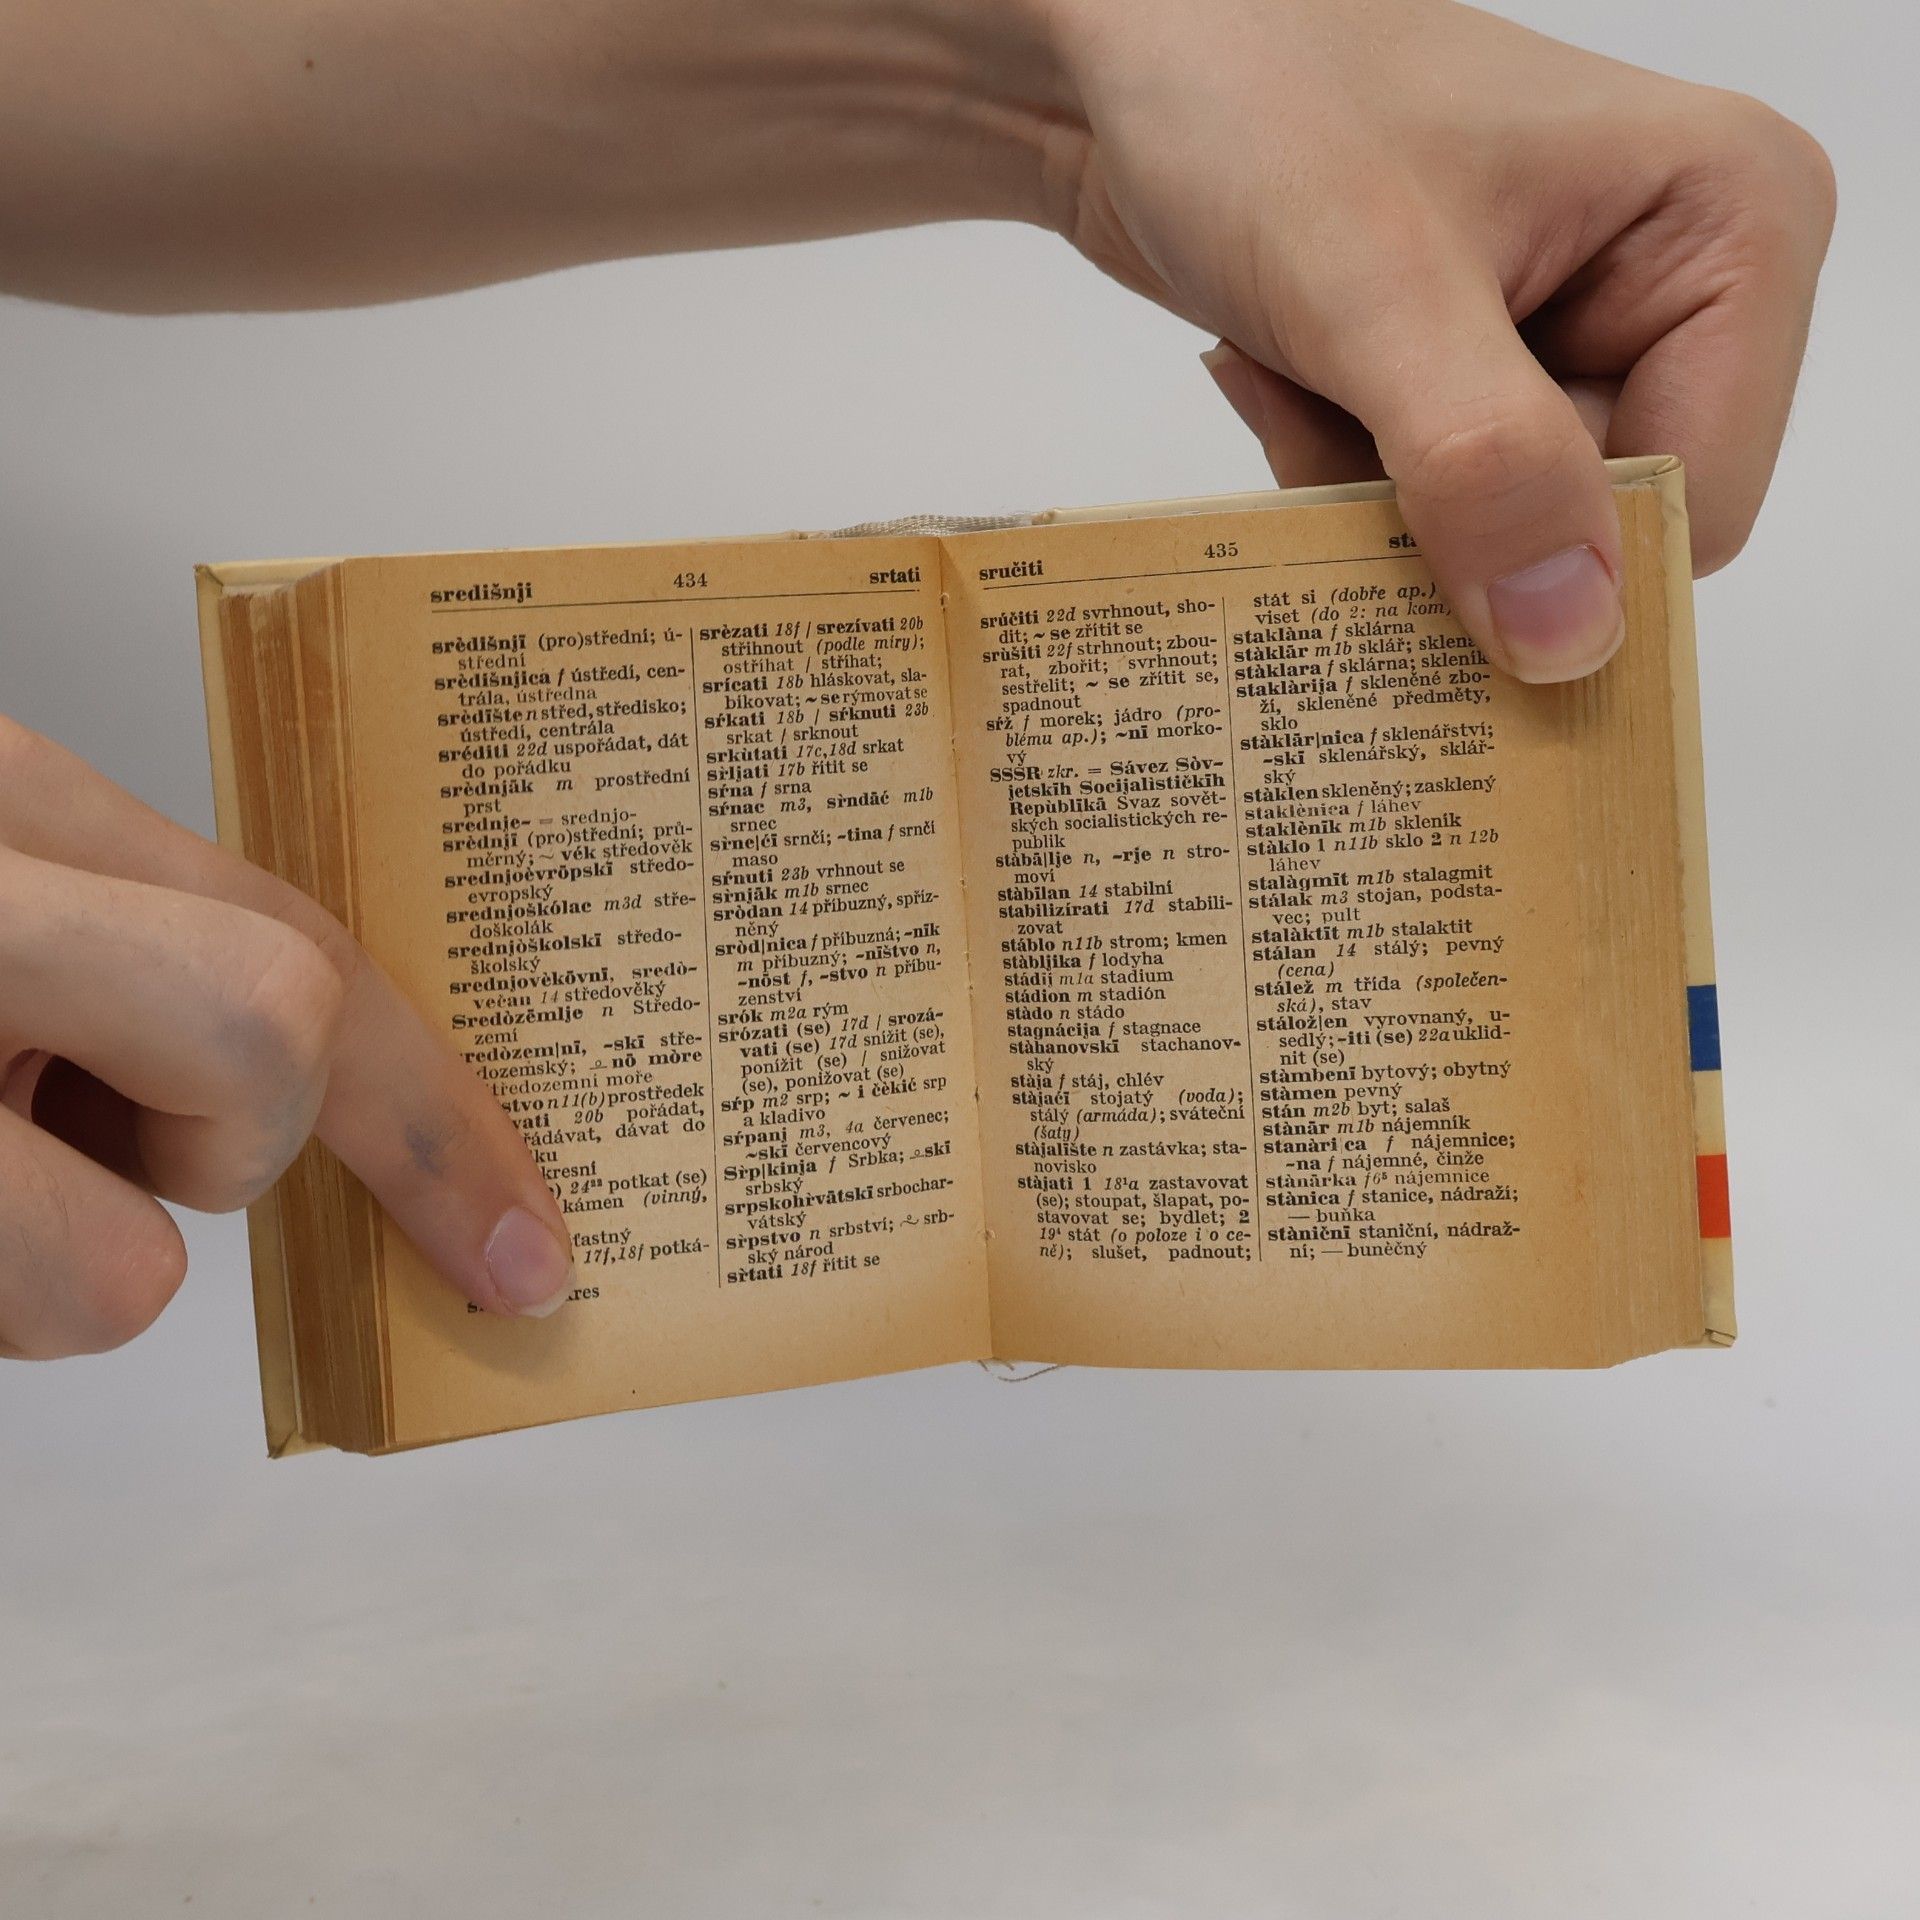 središnji 434 srtati
srèdišnjī (pro)střední; ú-
střední
srèdišnjica f ústředí, cen-
trála, ústředna
srèdīšte n střed, středisko;
ústředí, centrála
sréditi 22d uspořádat, dát
do pořádku
srèdnjāk m prostřední
prst
srednje- = srednjo-
srèdnjī (pro)střední; prů-
měrný; ~ vék středověk
srednjoèvrōpskī středo-
evropský
srednjoškólac m3d stře-
doškolák
srednjòškolskī středo-
školský
srednjovèkōvnī, sredò-
večan 14 středověký
Sredòzēmlje n Středo-
zemí
redòzem|nī, -skī stře-
dozemský; nō mòre
tředozemní moře
stvo n11(b) prostředek
vati 20b pořádat,
řádávat, dávat do
ku
kresní
24²² potkat (se)
kámen (vinný,
ťastný
17f,18f potká-
res
srèzati 18f / srezívati 20b
střihnout (podle míry);
ostříhat / stříhat;
srícati 18b hláskovat, sla-
bikovat; ~ se rýmovat se
sŕkati 18b / sŕknuti 23b
srkat / srknout
srkùtati 17c,18d srkat
sr̀ljati 17b řítit se
sŕna f srna
sŕnac m3, sr̀ndāć m1b
srnec
sr̀ne|ćī srnčí; -tina f srnčí
maso
sŕnuti 23b vrhnout se
sr̀njāk m1b srnec
sròdan 14 příbuzný, spříz-
něný
sròd|nica f příbuzná; -nīk
m příbuzný; -nīštvo n,
-nōst f, -stvo n příbu-
zenství
srók m2a rým
srózati (se) 17d / srozá-
vati (se) 17d snížit (se),
ponížit (se) / snižovat
(se), ponižovat (se)
sŕp m2 srp; ~ i čèkić srp
a kladivo
sŕpanj m3, 4a červenec;
~skī červencový
Sr̀p|kinja f Srbka; skī
srbský
srpskohr̀vātskī srbochar-
vátský
sr̀pstvo n srbství; srb-
ský národ
sr̀tati 18f řítit se
sručiti 435
srúčiti 22d svrhnout, sho-
dit; ~ se zřítit se
srùšiti 22f strhnout; zbou-
rat, zbořit; svrhnout;
sestřelit; ~ se zřítit se,
spadnout
sŕž f morek; jádro (pro-
blému ap.); ~nī morko-
vý
SSSR zkr. = Sávez Sòv-
jetskīh Socijalìstičkīh
Repùblīkā Svaz sovět-
ských socialistických re-
publik
stàbā|lje n, -rje n stro-
moví
stàbīlan 14 stabilní
stabilizírati 17d stabili-
zovat
stáblo n11b strom; kmen
stàbljika f lodyha
stádij m1a stadium
stádion m stadión
stàdo n stádo
stagnácija f stagnace
stàhanovskī stachanov-
ský
stàja f stáj, chlév
stàjaćī stojatý (voda);
stálý (armáda); sváteční
(šaty)
stàjalīšte n zastávka; sta-
novisko
stàjati 1 18¹a zastavovat
(se); stoupat, šlapat, po-
stavovat se; bydlet; 2
19¹ stát (o poloze i o ce-
ně); slušet, padnout;
stát si (dobře ap.)
viset (do 2: na kom)
staklàna f sklárna
stàklār m1b sklář;
stàklara f sklárna; skleník
staklàrija f skleněné zbo-
ží, skleněné předměty,
sklo
stàklār|nica f sklenářství;
-skī sklenářský, sklář-
ský
stàklen skleněný; zasklený
staklènica f láhev
staklènīk m1b skleník
stàklo 1 n11b sklo 2 n 12b
láhev
stalàgmīt m1b stalagmit
stálak m3 stojan, podsta-
vec; pult
stalàktīt m1b stalaktit
stálan 14 stálý; pevný
(cena)
stálež m třída (společen-
ská), stav
stálož|en vyrovnaný, u-
sedlý; -iti (se) 22a uklid-
nit (se)
stàmbenī bytový; obytný
stàmen pevný
stán m2b byt; salaš
stànār m1b nájemník
stanàri|ca f nájemnice;
-na f nájemné, činže
stànārka f6⁵ nájemnice
stànica f stanice, nádraží;
— buňka
stàniční staniční, nádraž-
ní; — bunèčný